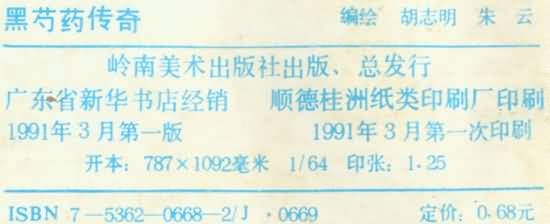 黑芍药传奇 编绘 胡志明 朱云
岭南美术出版社出版、总发行
广东省新华书店经销 顺德桂洲纸类印刷厂印刷
1991年3月第一版 1991年3月第一次印刷
开本：787×1092毫米 1/64 印张：1.25
ISBN 7—5362—0668—2/J·0669 定价：0.68元